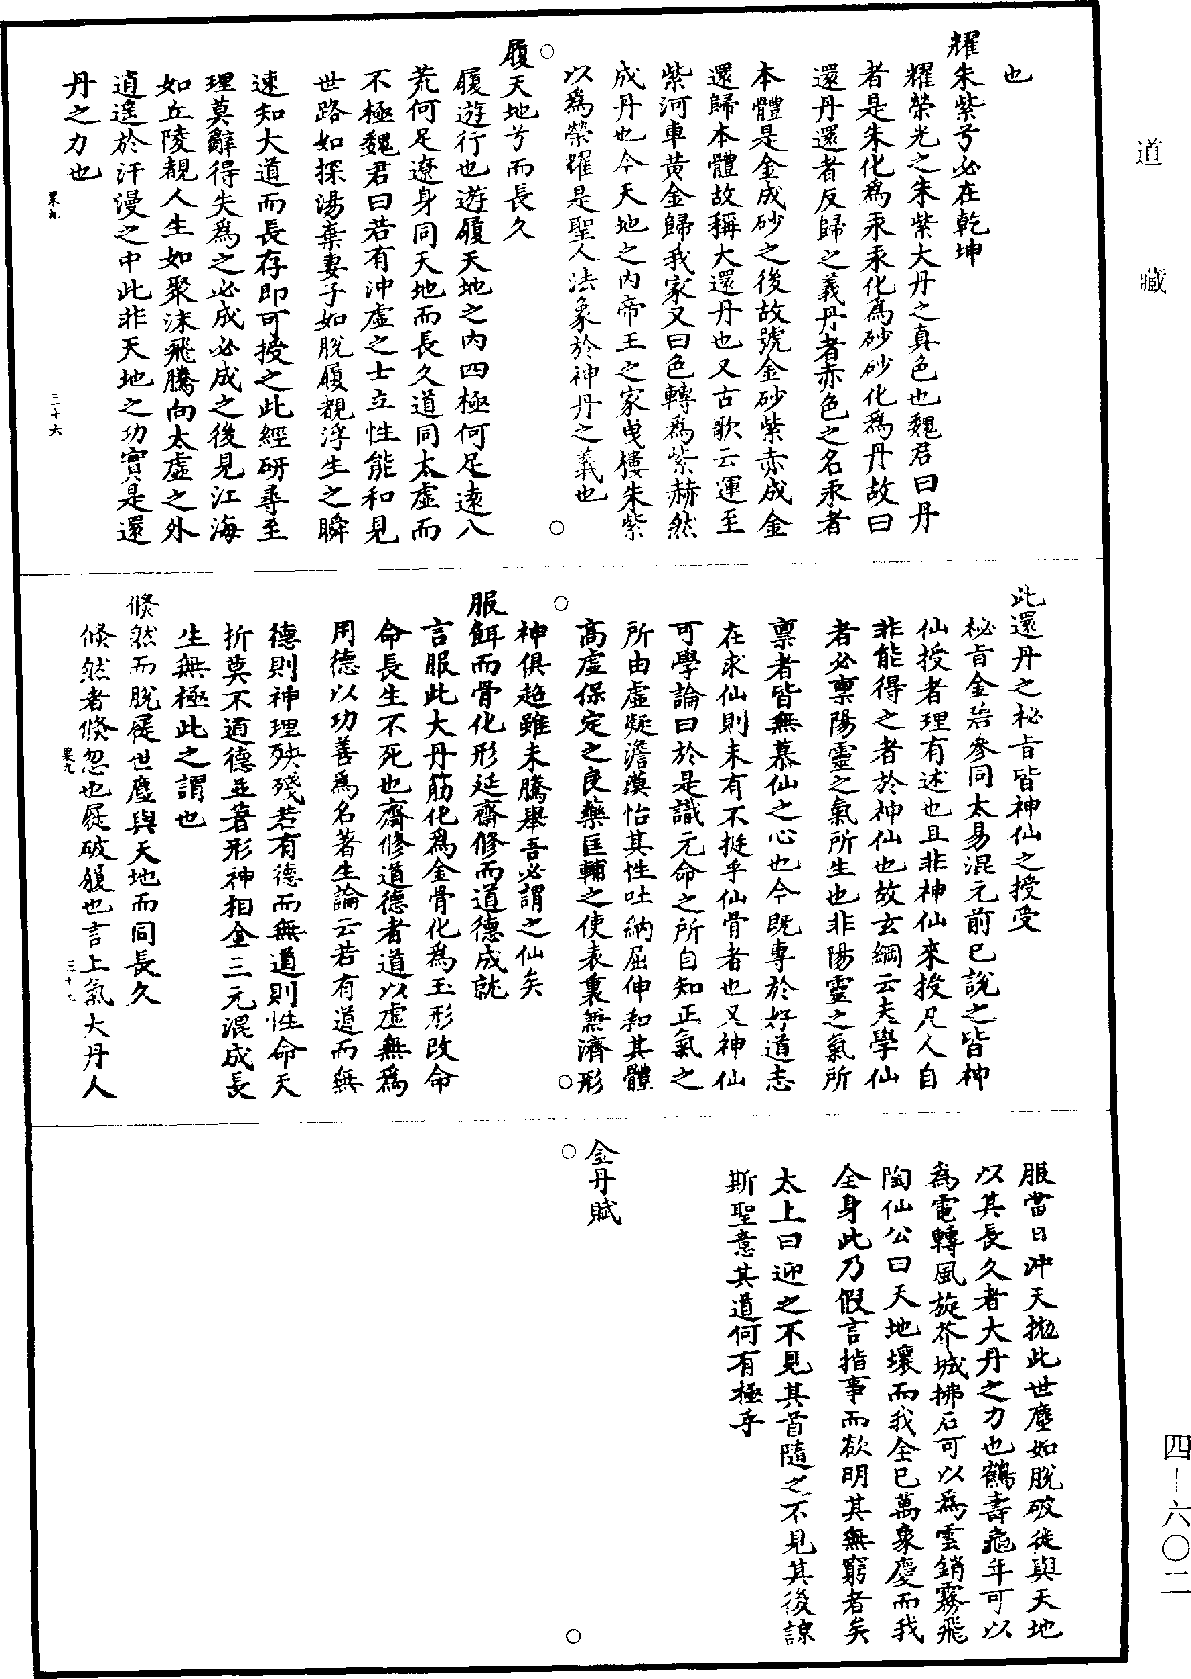 道藏
也
耀朱紫兮必在乾坤
耀榮光之朱紫大丹之真色也魏君曰丹
者是朱化為汞汞化為砂砂化為丹故曰
還丹還者反歸之義丹者赤色之名汞者
本體是金成砂之後故號金砂紫赤成金
還歸本體故稱大還丹也又古歌云運至
紫河車黃金歸我家又曰色轉為紫赫然
成丹也今天地之內帝王之家曳樓朱紫
以為榮耀是聖人法象於神丹之義也
履天地兮而長久
履遊行也遊履天地之內四極何足遠八
荒何足遼身同天地而長久道同太虛而
不極魏君曰若有沖虛之士立性能和見
世路如探湯棄妻子如脫履觀浮生之瞬
速知大道而長存即可授之此經研尋至
理莫辭得失為之必成必成之後見江海
如丘陵覩人生如聚沫飛騰向太虛之外
逍遙於汗漫之中此非天地之功實是還
丹之力也
果九
三十六
此還丹之秘旨皆神仙之授受
秘旨金碧參同太易混元前已說之皆神
仙授者理有述也且非神仙來授凡人自
非能得之者於神仙也故玄綱云夫學仙
者必稟陽靈之氣所生也非陽靈之氣所
稟者皆無慕仙之心也今既專於好道志
在求仙則未有不挺乎仙骨者也又神仙
可學論曰於是識元命之所自知正氣之
所由虛凝澹漠怡其性吐納屈伸和其體
高虛保定之良藥匡輔之使表裏無濟形
神俱超雖未騰舉吾必謂之仙矣
服餌而骨化形延齋修而道德成就
言服此大丹筋化為金骨化為玉形改命
命長生不死也齋修道德者道以虛無為
用德以功善為名著生論云若有道而無
德則神理殃殘若有德而無道則性命夭
折莫不道德並著形神相全三元混成長
生無極此之謂也
倏然而脫屣世塵與天地而同長久
倏然者倏忽也屣破履也言上氣大丹人
果九
服當日沖天拋此世塵如脫破屣與天地
以其長久者大丹之力也鶴壽龜年可以
為電轉風旋芥城拂石可以為雲銷霧飛
陶仙公曰天地壞而我全已萬象慶而我
全身此乃假言指事而欲明其無窮者矣
太上曰迎之不見其首隨之不見其後諒
斯聖意其道何有極乎
金丹賦
四－六〇二